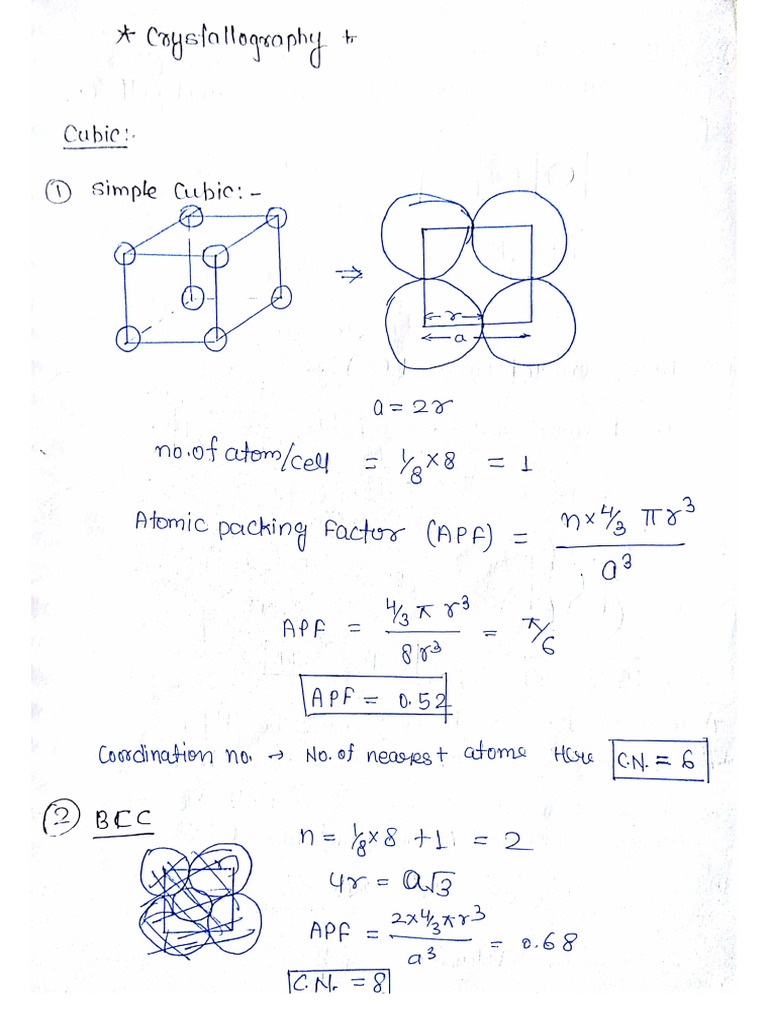 * Crystallography +
Cubic:-
① Simple Cubic:-
⇒
← r →
← a →
a = 2r
no. of atom/cell = 1/8 × 8 = 1
Atomic packing Factor (APF) = n × 4/3 π r³ / a³
APF = 4/3 π r³ / 8r³ = π/6
APF = 0.52
Coordination no. → No. of nearest atoms Here C.N. = 6
② BCC
n = 1/8 × 8 + 1 = 2
4r = a√3
APF = 2 × 4/3 π r³ / a³ = 0.68
C.N. = 8